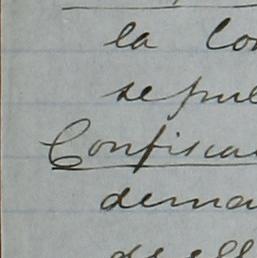 la Co
sepul
Confisca
dema